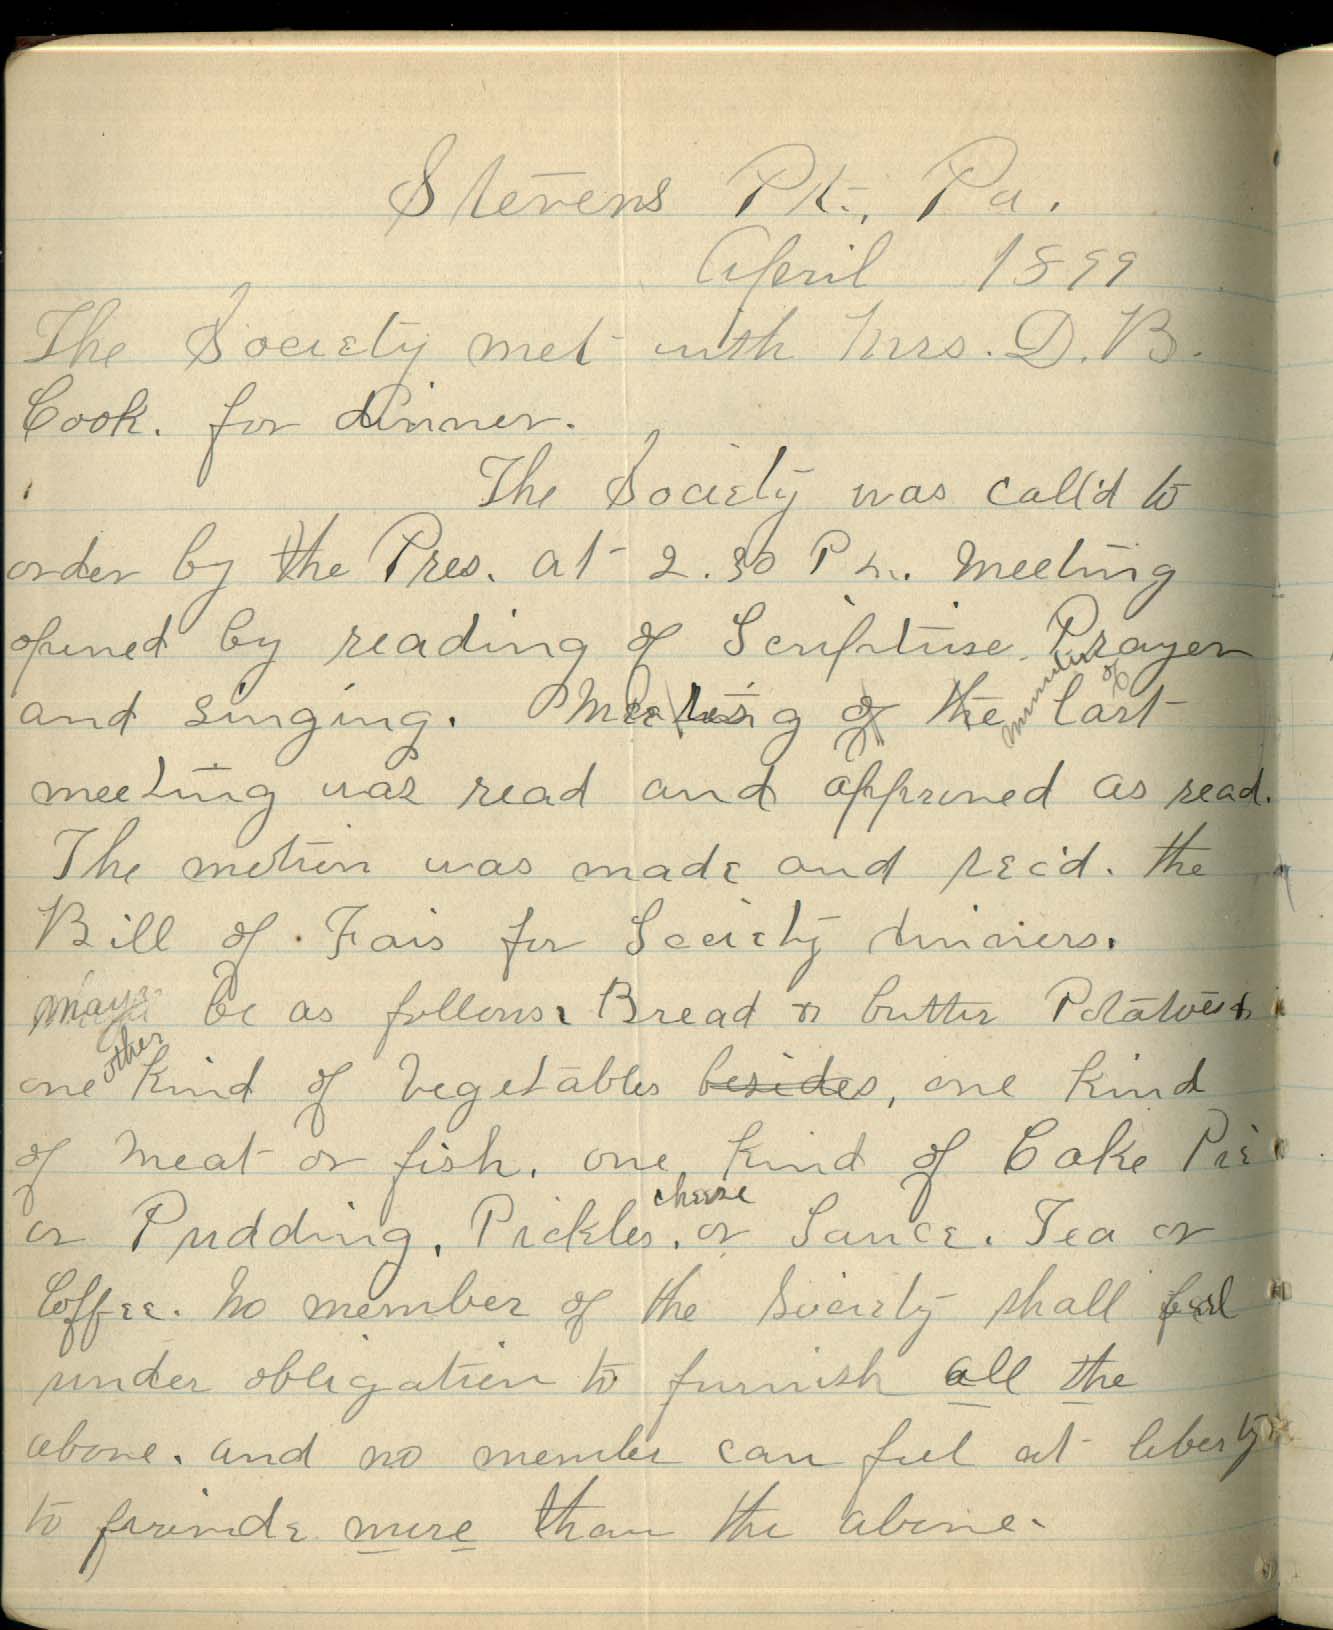 Stevens Pt., Pa.
April 1899
The Society met with Mrs. D. B.
Cook. for dinner.
The Society was call'd to
order by the Pres. at 2.30 P m. Meeting
opened by reading of Scripture. Prayer
and singing. Meeting of the minutes of last
meeting was read and approved as read.
The motion was made and sec'd. the
Bill of Fair for Society dinners.
may be as follows: Bread & butter Potatoes &
one other kind of Vegetables besides, one kind
of meat or fish. one kind of Cake Pie
or Pudding. Pickles. cheese or Sauce. Tea or
Coffee. No member of the Society shall feel
under obligation to furnish all the
above. and no member can feel at liberty
to provide more than the above.